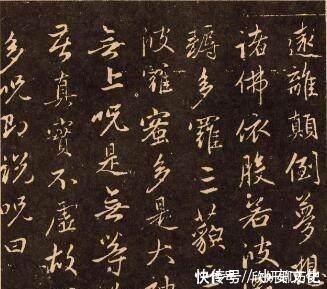 遠離顛倒夢想
諸佛依般若波
耨多羅三藐
波羅蜜多是大神
無上呪是無等
苦真實不虛故
多呪即說呪曰
快传号/